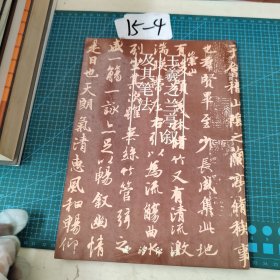 15-4
王羲之兰亭叙
及其笔法
于會稽山陰之蘭亭脩禊事
也羣賢畢至少長咸集此地
崇山
有峻領茂林脩竹又有清流激
湍暎帶左右引以為流觴曲水
列坐其次雖無絲竹管弦之
盛一觴一詠亦足以暢敘幽情
是日也天朗氣清惠風和暢仰